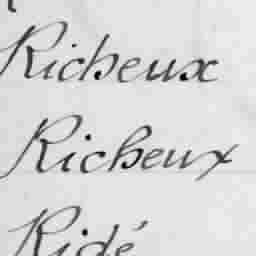 Richeux
Richeux
Ridé